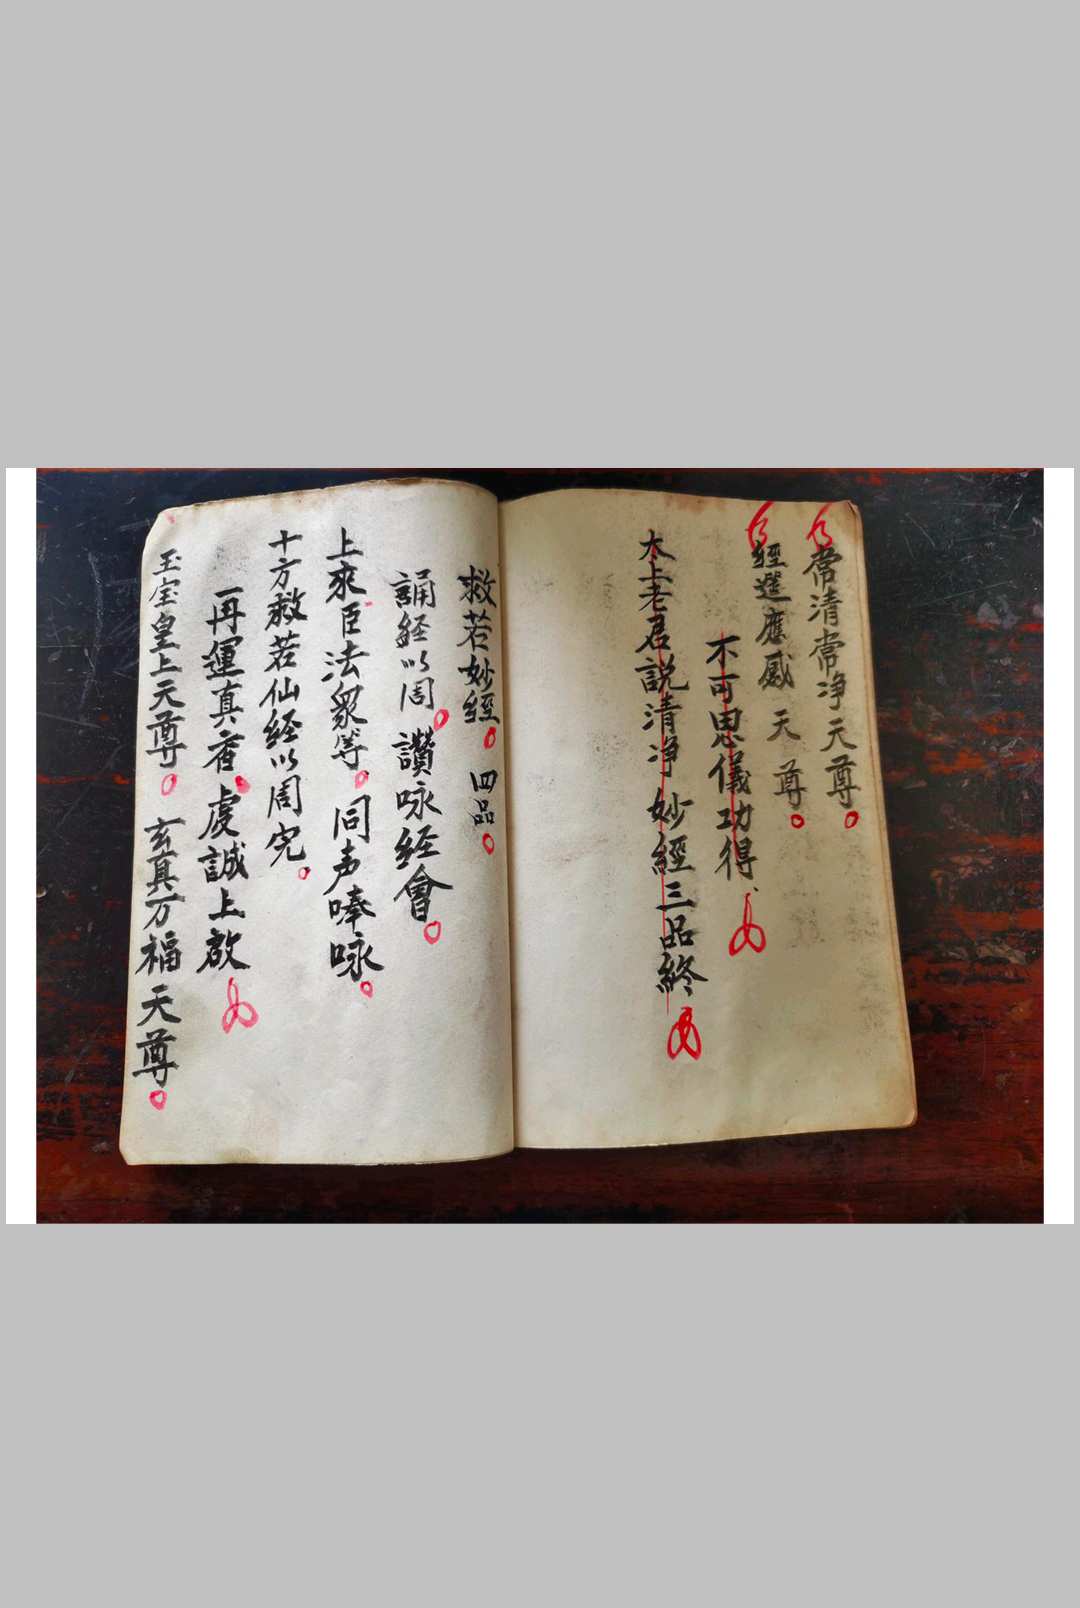 常清常净天尊
經選應感天尊
不可思儀功得
太上老君説清净妙經三品終
救若妙經 四品
誦経以周 讚咏経會
上來臣法衆等 同声唪咏
十方救若仙経以周完
再運真香 虔誠上啟
玉宝皇上天尊 玄真万福天尊